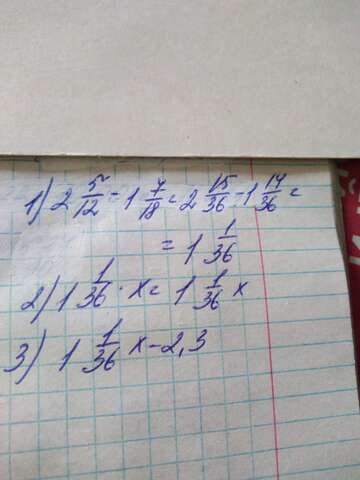 1) 2 5/12 - 1 7/18 = 2 15/36 - 1 14/36 =
= 1 1/36
2) 1 1/36 · x = 1 1/36 x
3) 1 1/36 x - 2,3